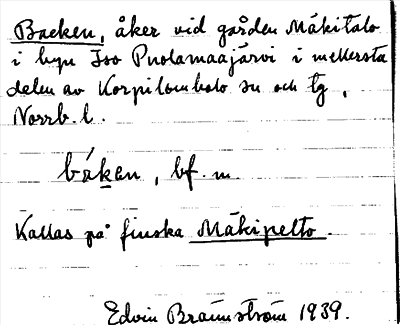 Backen, åker vid gården Mäkitalo
i byn Iso Puolamaajärvi i mellersta
delen av Korpilombolo sn och tg,
Norrb. l.
båken, bf. m.
Kallas på finska Mäkipelto.
Edvin Brännström 1939.